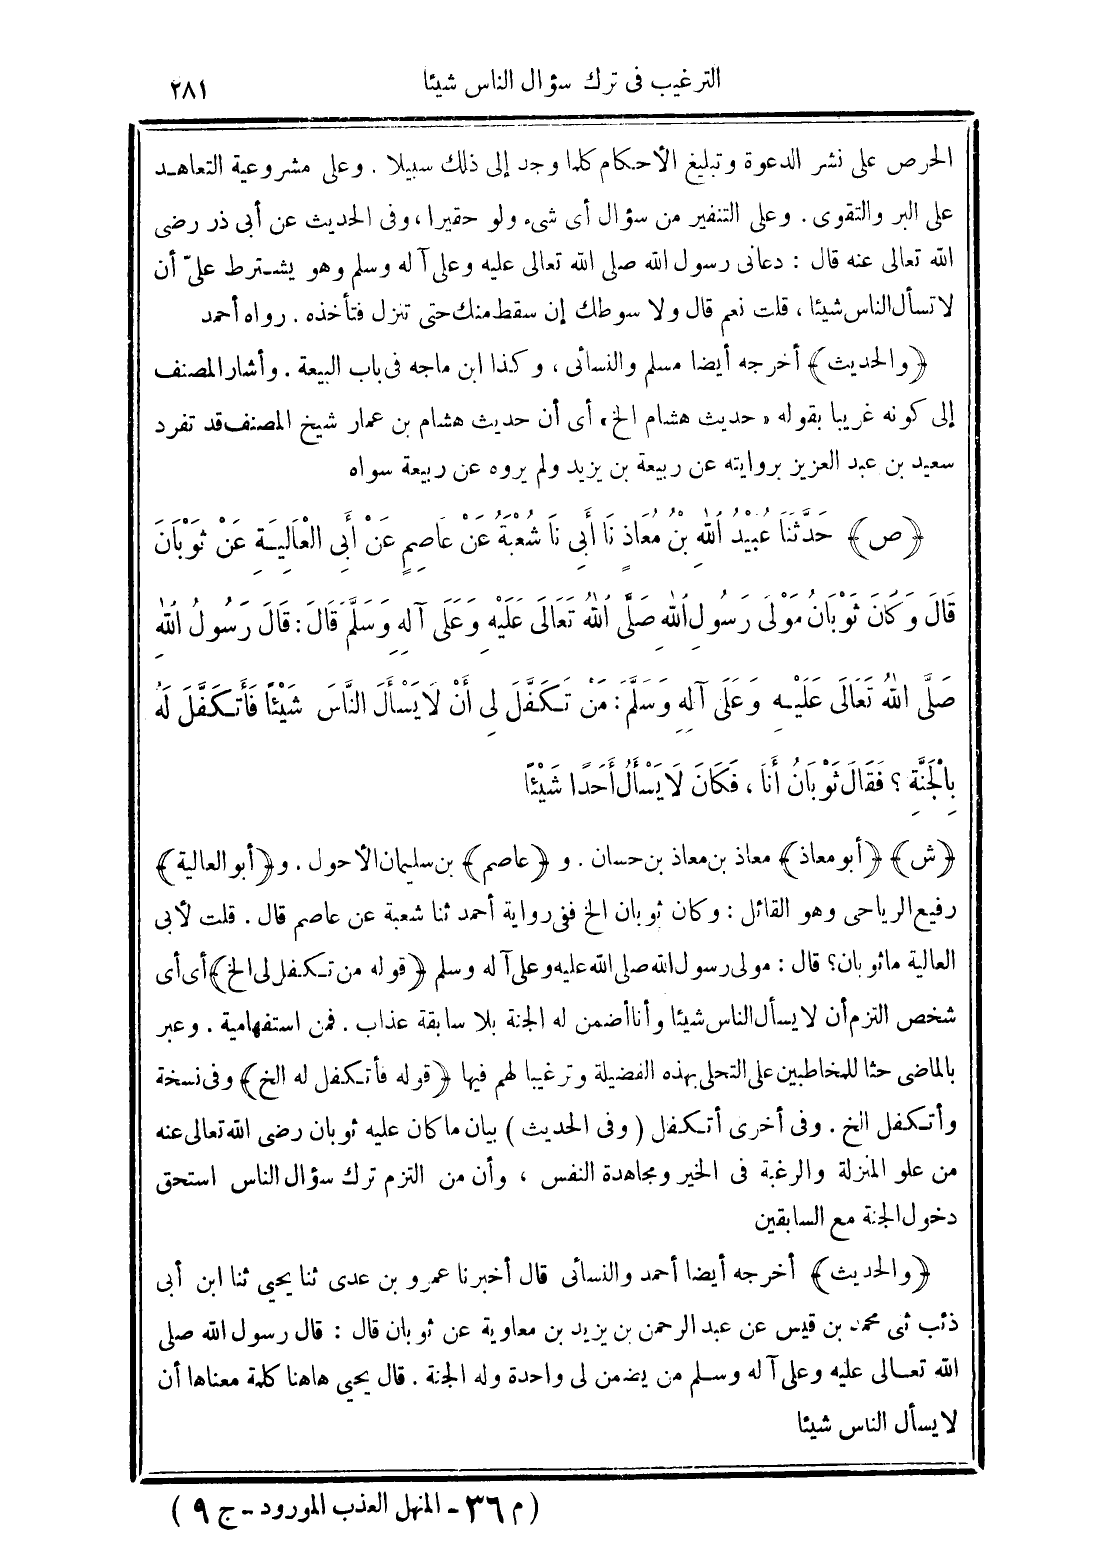 الترغيب فى ترك سؤال الناس شيئا
٢٨١
الحرص على نشر الدعوة وتبليغ الأحكام كلما وجد إلى ذلك سبيلا . وعلى مشروعية التعاهد
على البر والتقوى . وعلى التنفير من سؤال أى شىء ولو حقيرا ، وفى الحديث عن أبى ذر رضى
الله تعالى عنه قال : دعانى رسول الله صلى الله تعالى عليه وعلى آله وسلم وهو يشترط علىّ أن
لا تسأل الناس شيئا ، قلت نعم قال ولا سوطك إن سقط منك حتى تنزل فتأخذه . رواه أحمد
﴿والحديث﴾ أخرجه أيضا مسلم والنسائى ، وكذا ابن ماجه فى باب البيعة . وأشار المصنف
إلى كونه غريبا بقوله «حديث هشام الخ» أى أن حديث هشام بن عمار شيخ المصنف قد تفرد
سعيد بن عبد العزيز بروايته عن ربيعة بن يزيد ولم يروه عن ربيعة سواه
﴿ص﴾ حَدَّثَنَا عُبَيْدُ اللهِ بْنُ مُعَاذٍ نَا أَبِى نَا شُعْبَةُ عَنْ عَاصِمٍ عَنْ أَبِى الْعَالِيَةِ عَنْ ثَوْبَانَ
قَالَ وَكَانَ ثَوْبَانُ مَوْلَى رَسُولِ اللهِ صَلَّى اللهُ تَعَالَى عَلَيْهِ وَعَلَى آلِهِ وَسَلَّمَ قَالَ : قَالَ رَسُولُ اللهِ
صَلَّى اللهُ تَعَالَى عَلَيْهِ وَعَلَى آلِهِ وَسَلَّمَ : مَنْ تَكَفَّلَ لِى أَنْ لَا يَسْأَلَ النَّاسَ شَيْئًا فَأَتَكَفَّلَ لَهُ
بِالْجَنَّةِ ؟ فَقَالَ ثَوْبَانُ أَنَا ، فَكَانَ لَا يَسْأَلُ أَحَدًا شَيْئًا
﴿ش﴾ ﴿أبو معاذ﴾ معاذ بن معاذ بن حسان . و ﴿عاصم﴾ بن سليمان الأحول . و﴿أبو العالية﴾
رفيع الرياحى وهو القائل : وكان ثوبان الخ ففى رواية أحمد ثنا شعبة عن عاصم قال . قلت لأبى
العالية ما ثوبان؟ قال : مولى رسول الله صلى الله عليه وعلى آله وسلم ﴿قوله من تكفل لى الخ﴾ أى أى
شخص التزم أن لا يسأل الناس شيئا وأنا أضمن له الجنة بلا سابقة عذاب . فمن استفهامية . وعبر
بالماضى حثا للمخاطبين على التحلى بهذه الفضيلة وترغيبا لهم فيها ﴿قوله فأتكفل له الخ﴾ وفى نسخة
وأتكفل الخ . وفى أخرى أتكفل (وفى الحديث) بيان ما كان عليه ثوبان رضى الله تعالى عنه
من علو المنزلة والرغبة فى الخير ومجاهدة النفس ، وأن من التزم ترك سؤال الناس استحق
دخول الجنة مع السابقين
﴿والحديث﴾ أخرجه أيضا أحمد والنسائى قال أخبرنا عمرو بن عدى ثنا يحيى ثنا ابن أبى
ذئب ثى محمد بن قيس عن عبد الرحمن بن يزيد بن معاوية عن ثوبان قال : قال رسول الله صلى
الله تعالى عليه وعلى آله وسلم من يضمن لى واحدة وله الجنة . قال يحيى هاهنا كلمة معناها أن
لا يسأل الناس شيئا
( م ٣٦ - المنهل العذب المورود - ج ٩ )